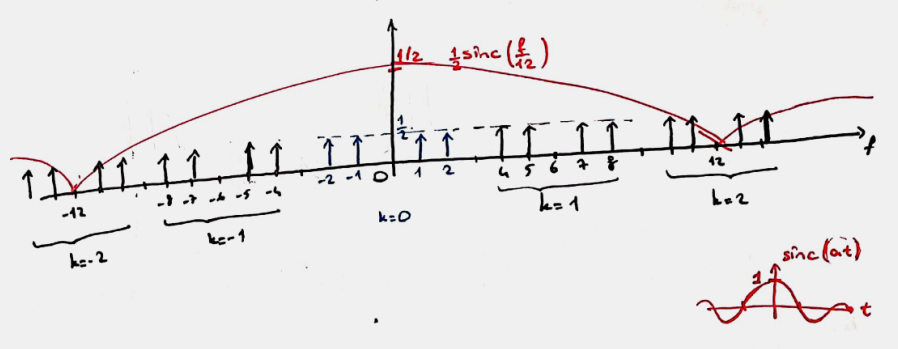 1/2 1/2 sinc(f/12)
1/2
-12 -8 -7 -6 -5 -4 -2 -1 0 1 2 4 5 6 7 8 12 f
k=-2 k=-1 k=0 k=1 k=2
sinc(at)
1
t